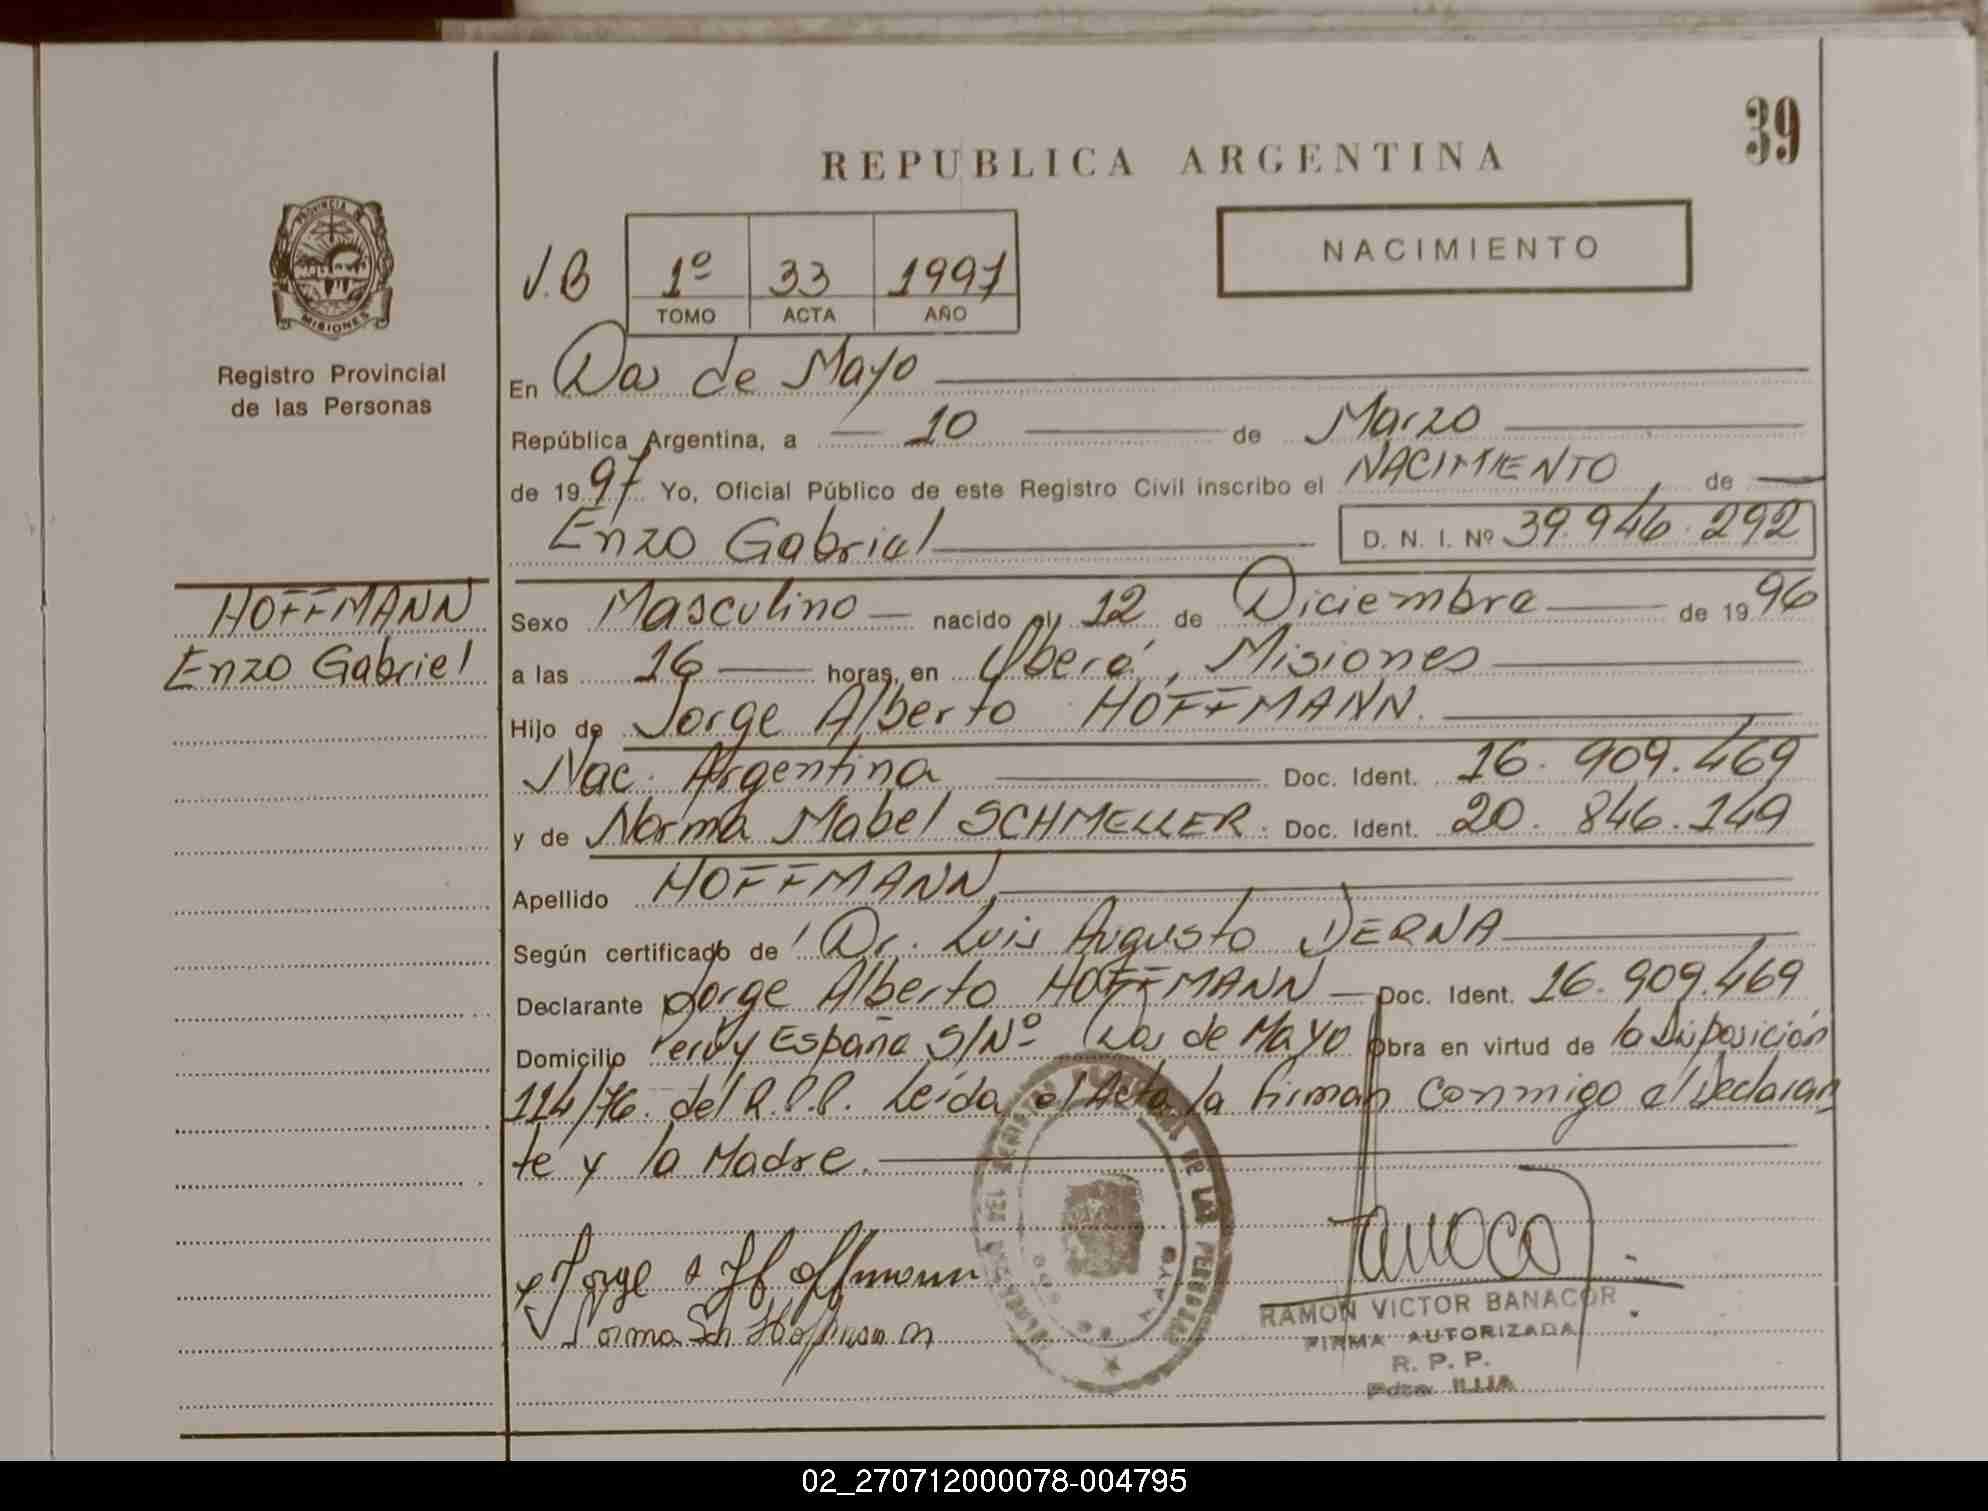 39
REPUBLICA ARGENTINA
PROVINCIA DE
MISIONES
Registro Provincial
de las Personas
NACIMIENTO
J.B 1º 33 1997
TOMO ACTA AÑO
En Dos de Mayo
República Argentina, a 10 de Marzo
de 1997 Yo, Oficial Público de este Registro Civil inscribo el NACIMIENTO de
Enzo Gabriel D. N. I. Nº 39.946.292
HOFFMANN
Enzo Gabriel
Sexo Masculino nacido el 12 de Diciembre de 1996
a las 16 horas, en Oberá, Misiones
Hijo de Jorge Alberto HOFFMANN.
Nac. Argentina Doc. Ident. 16.909.469
y de Norma Mabel SCHMELLER. Doc. Ident. 20.846.149
Apellido HOFFMANN
Según certificado de Dr. Luis Augusto DERNA
Declarante Jorge Alberto HOFFMANN Doc. Ident. 16.909.469
Domicilio Perú y España S/Nº Dos de Mayo Obra en virtud de la Disposición
114/76. del R.P.P. Leída el Acta la firman conmigo el Declaran
te y la Madre.
Jorge A Hoffmann
Norma Sch Hoffmann
DE LAS PERSONAS
RAMON VICTOR BANACOR
FIRMA AUTORIZADA
R. P. P.
Pdte. ILLIA
02_270712000078-004795